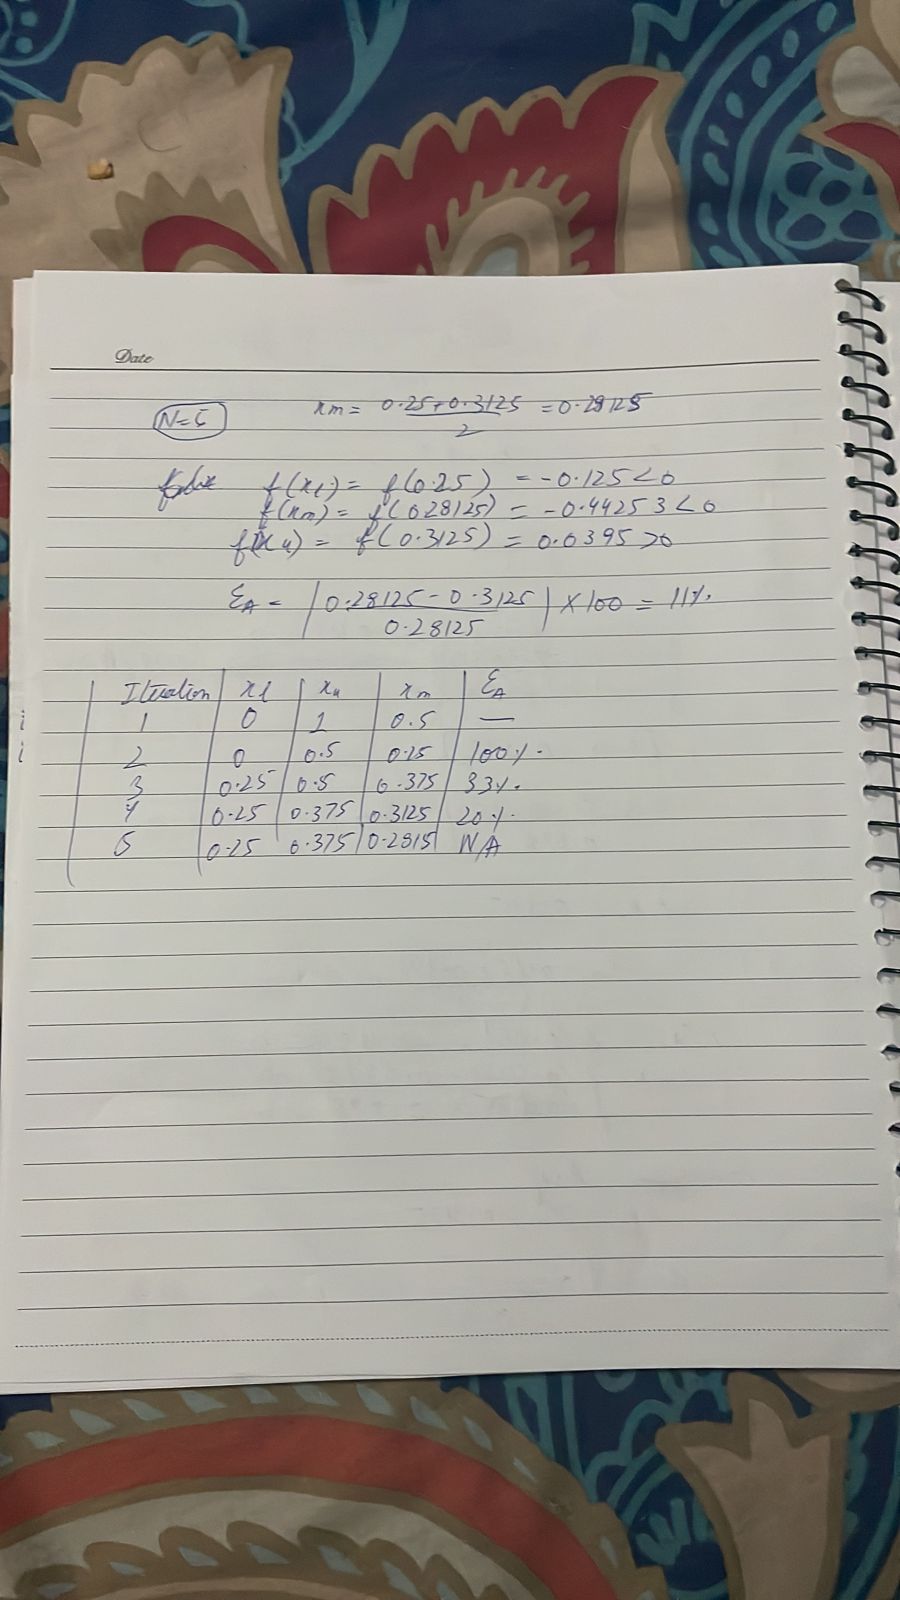 Date
N=5 xm = 0.25+0.3125 = 0.28125
2
f(xl) = f(0.25) = -0.125<0
f(xm) = f(0.28125) = -0.44253<0
f(xu) = f(0.3125) = 0.0395>0
EA = |0.28125-0.3125| × 100 = 11%.
0.28125
Iteration xl xu xm EA
1 0 1 0.5 —
2 0 0.5 0.25 100%.
3 0.25 0.5 0.375 33%.
4 0.25 0.375 0.3125 20%.
5 0.25 0.375 0.2815 N/A